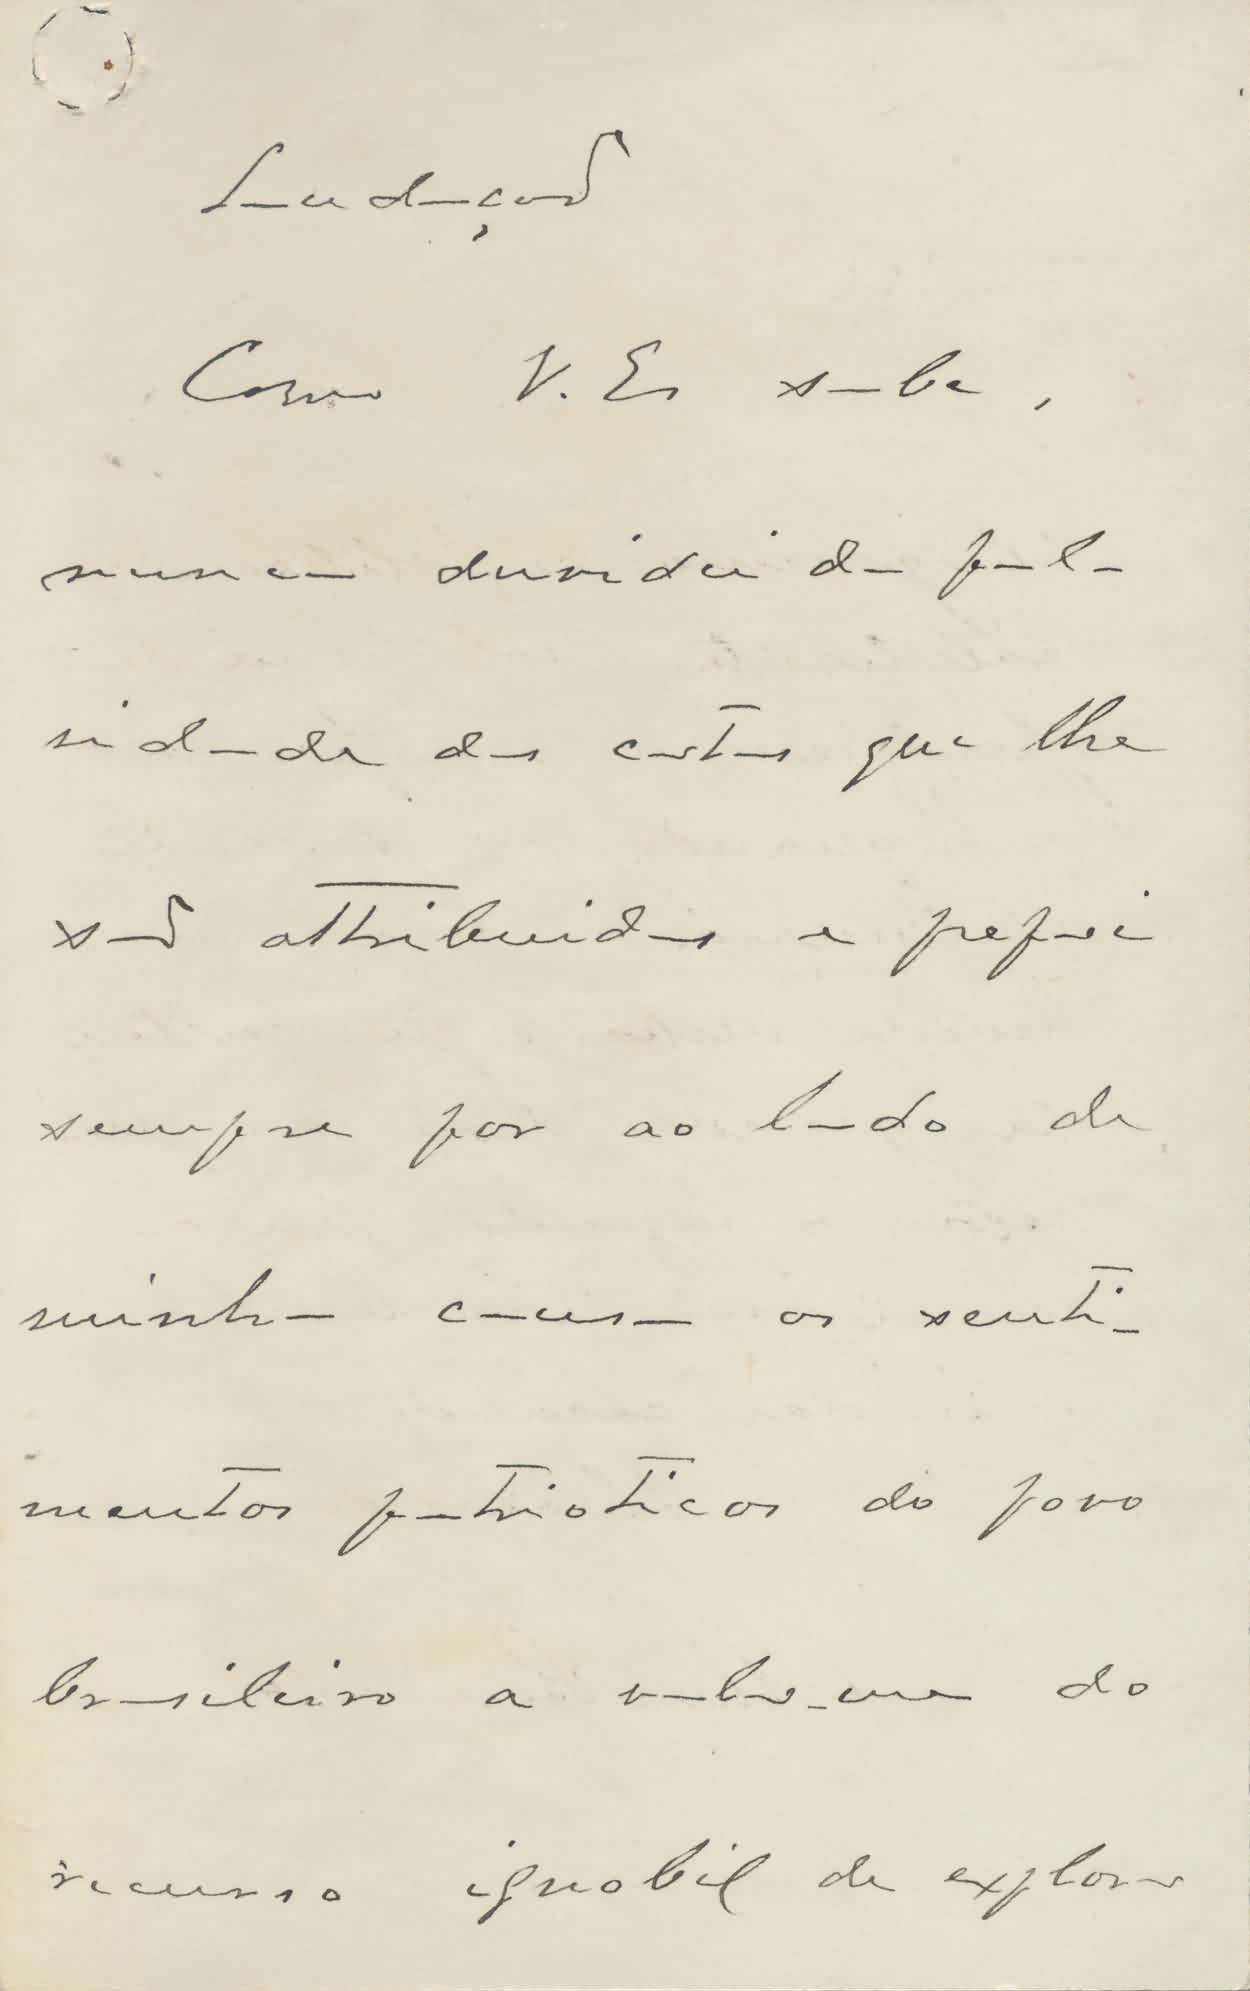 Saudações
Como V. Ex sabe,
nunca duvidei da fal-
sidade das cartas que lhe
são attribuidas e preferi
sempre por ao lado de
minha causa os senti-
mentos patrioticos do povo
brasileiro a valer-me do
recurso ignobil de explorar